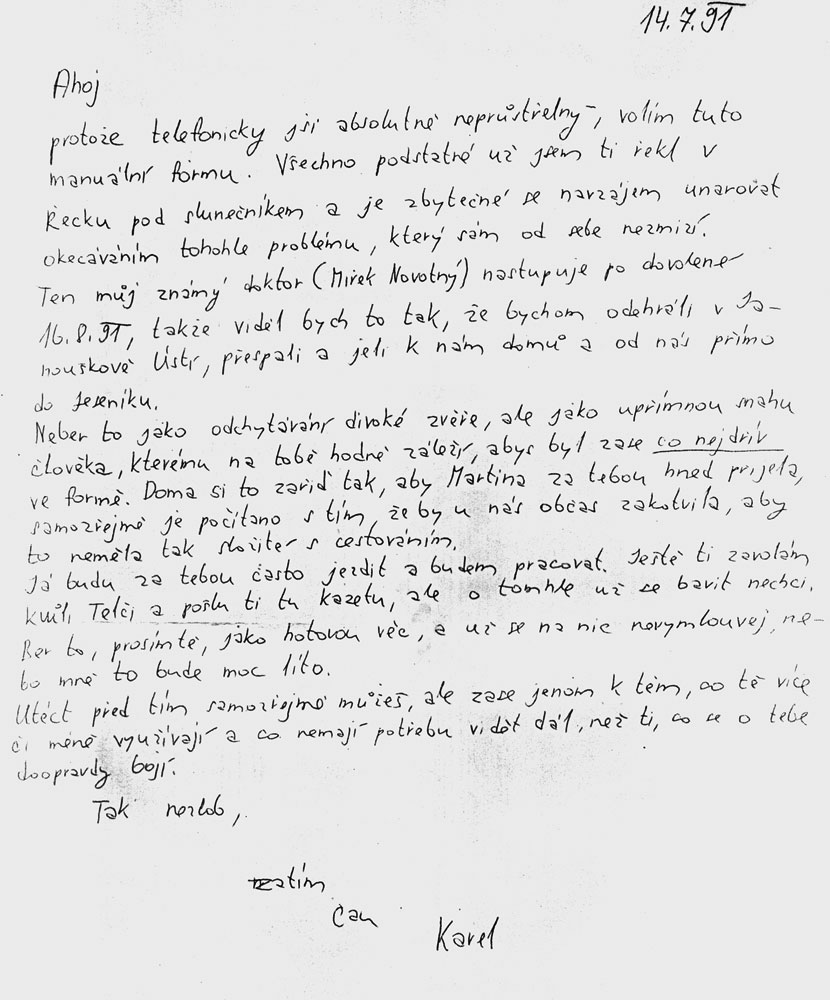 14.7.91
Ahoj
protože telefonicky jsi absolutně neprůstřelný, volím tuto
manuální formu. Všechno podstatné už jsem ti řekl v
Řecku pod slunečníkem a je zbytečné se navzájem unavovat
okecáváním tohohle problému, který sám od sebe nezmizí.
Ten můj známý doktor (Mirek Novotný) nastupuje po dovolené
16.8.91, takže viděl bych to tak, že bychom odehráli v Ja-
nouškově Ústí, přespali a jeli k nám domů a od nás přímo
do Jeseníku.
Neber to jako odchytávání divoké zvěře, ale jako upřímnou snahu
člověka, kterému na tobě hodně záleží, abys byl zase co nejdřív
ve formě. Doma si to zařiď tak, aby Martina za tebou hned přijela,
samozřejmě je počítáno s tím, že by u nás občas zakotvila, aby
to neměla tak složitý s cestováním.
Já budu za tebou často jezdit a budem pracovat. Ještě ti zavolám
kvůli Telči a pošlu ti tu kazetu, ale o tomhle už se bavit nechci.
Ber to, prosímtě, jako hotovou věc, a už se na nic nevymlouvej, ne-
bo mně to bude moc líto.
Utéct před tím samozřejmě můžeš, ale zase jenom k těm, co tě více
či méně využívají a co nemají potřebu vidět dál, než ti, co se o tebe
doopravdy bojí.
Tak nezlob,
zatím
Čau
Karel